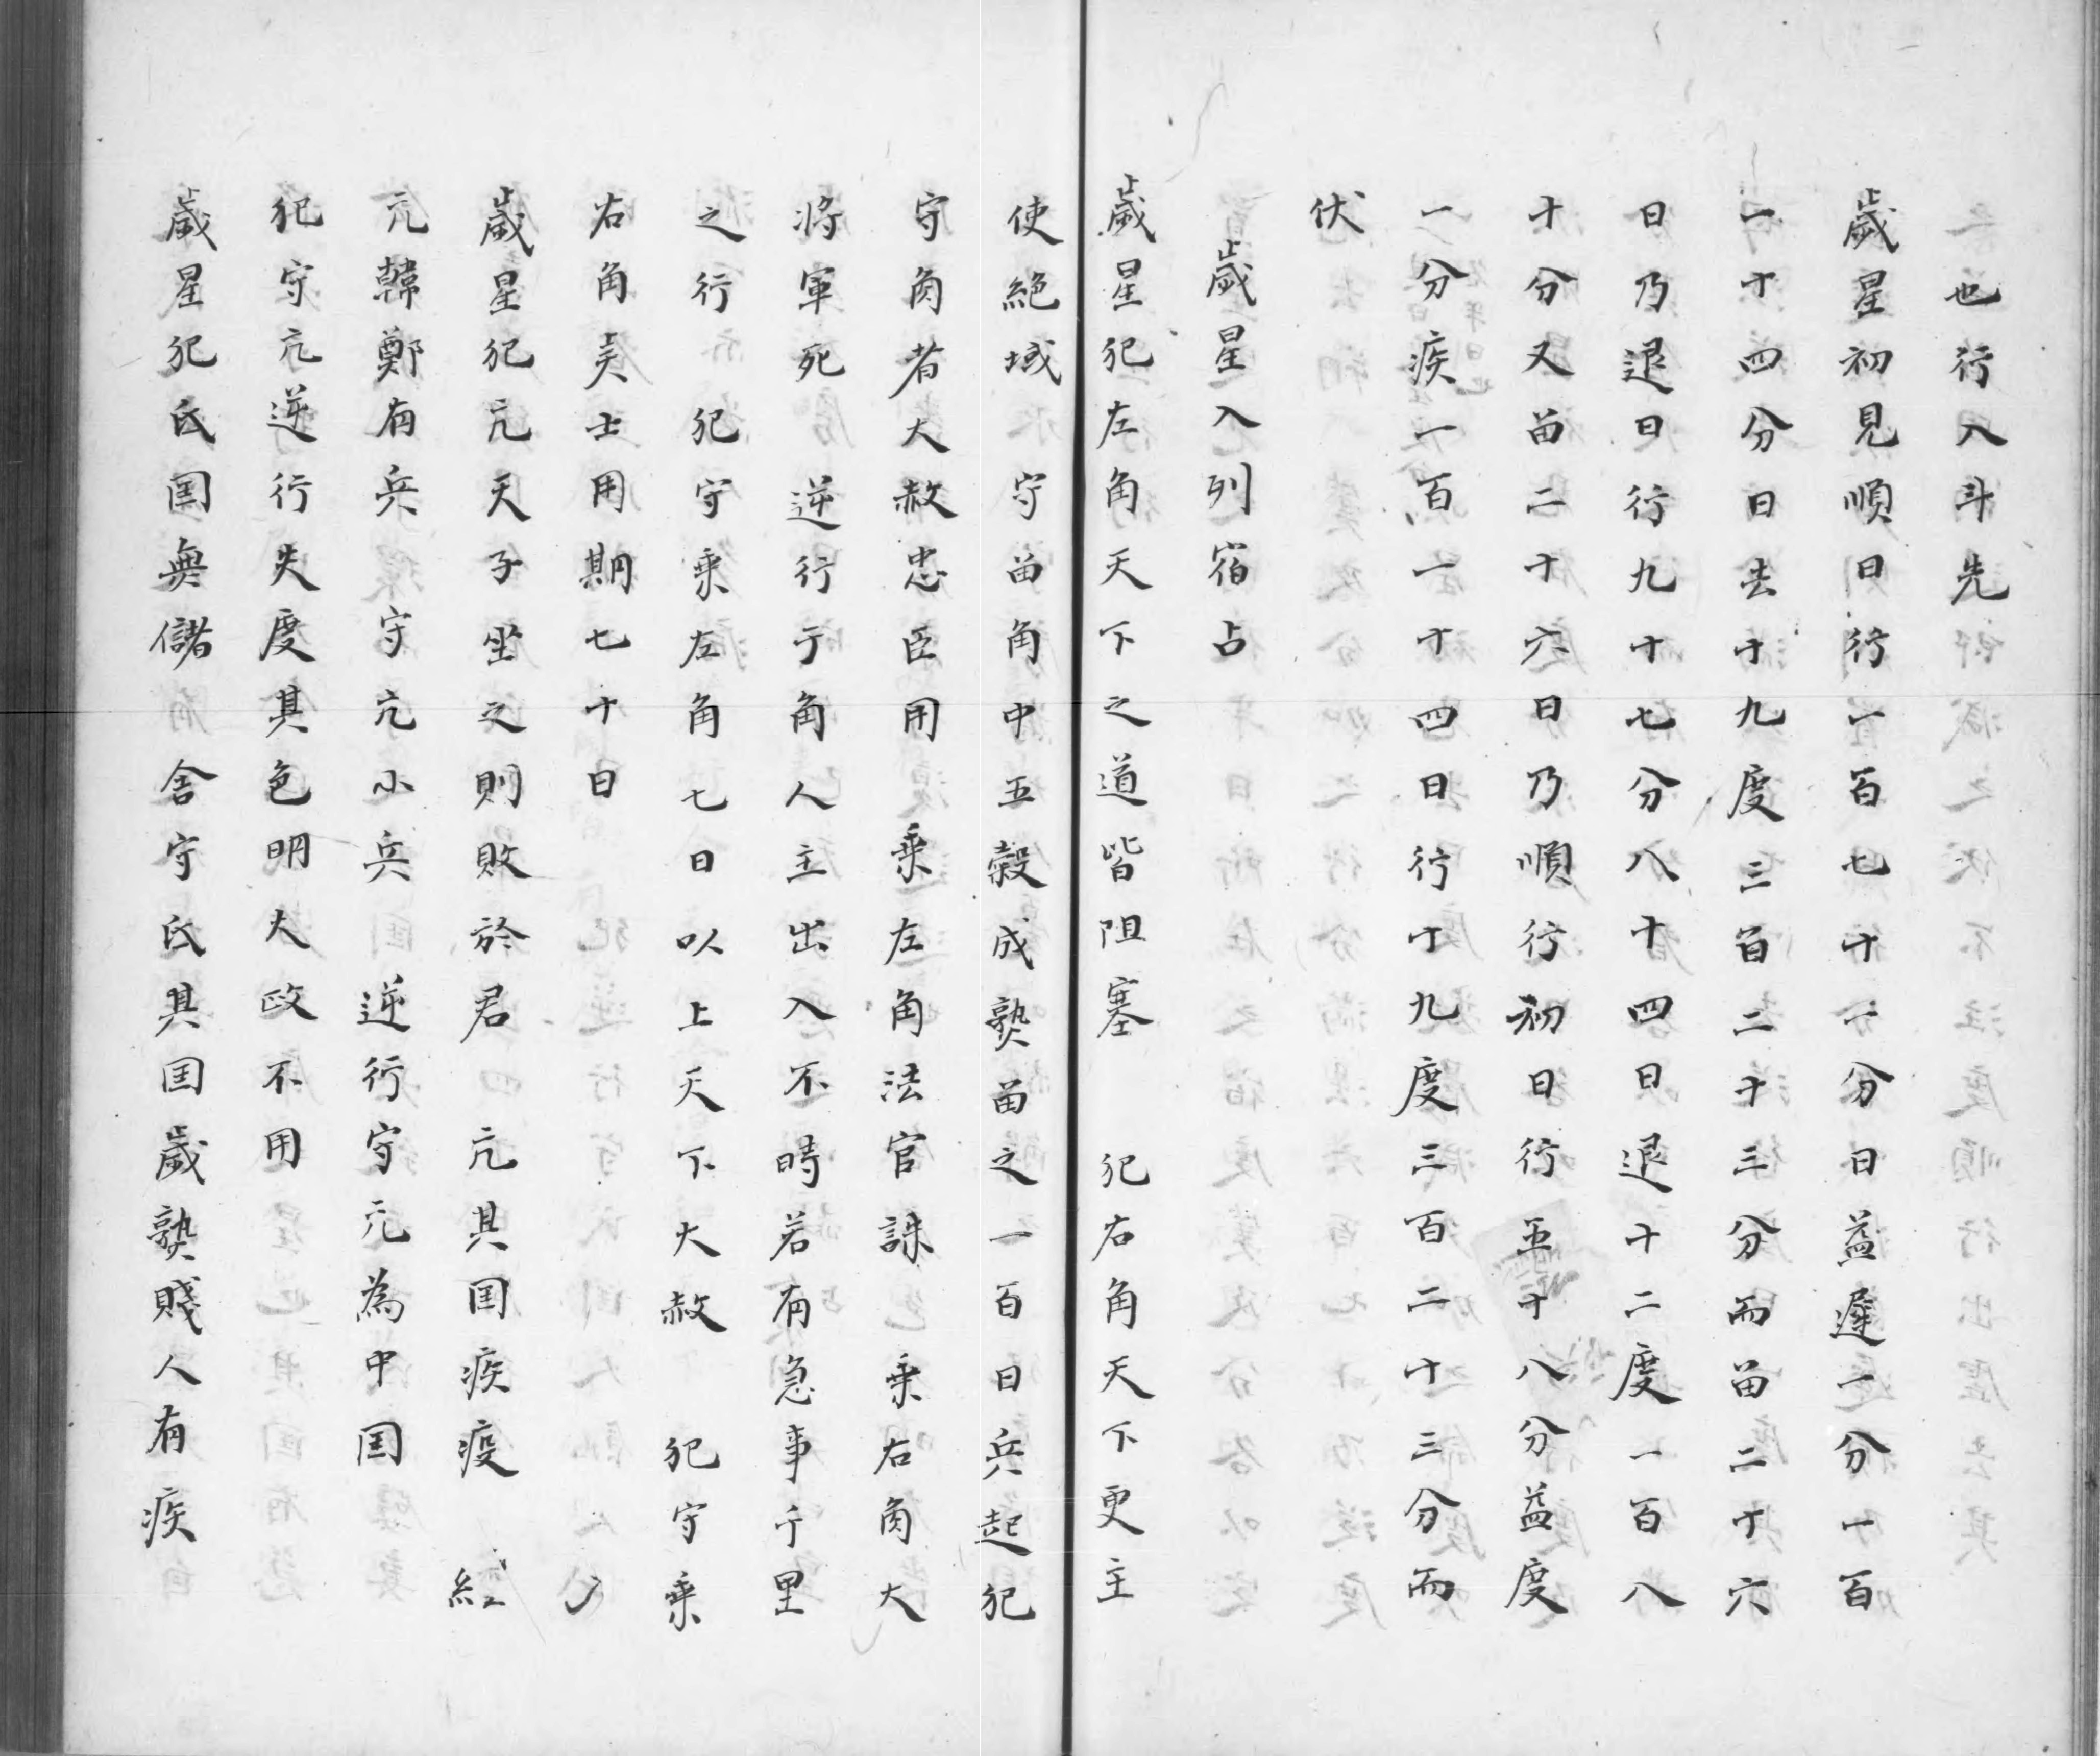 之也行入斗先
歲星初見順日行一百七十一分日益遲一分一百
一十四分日去十九度三百二十三分而畄二十六
日乃退日行九十七分八十四日退十二度一百八
十分又畄二十六日乃順行初日行五十八分益度
一分疾一百一十四日行十九度三百二十三分而
伏
歲星入列宿占
歲星犯左角天下之道皆阻塞 犯右角天下更主
使絕域 守畄角中五穀成熟畄之一百日兵起犯
守角者大赦忠臣用 乗左角法官誅 乗右角大
將軍死 逆行于角人主出入不時若有急事千里
之行 犯守乗左角七日以上天下大赦 犯守乗
右角美士用期七十日
歲星犯亢天子坐之則敗於君 亢其国疾疫
亢韓鄭有兵 守亢小兵 逆行守亢為中国
犯守亢逆行失度其色明大政不用
歲星犯氐国無儲 舍守氐其国歲熟賤人有疾